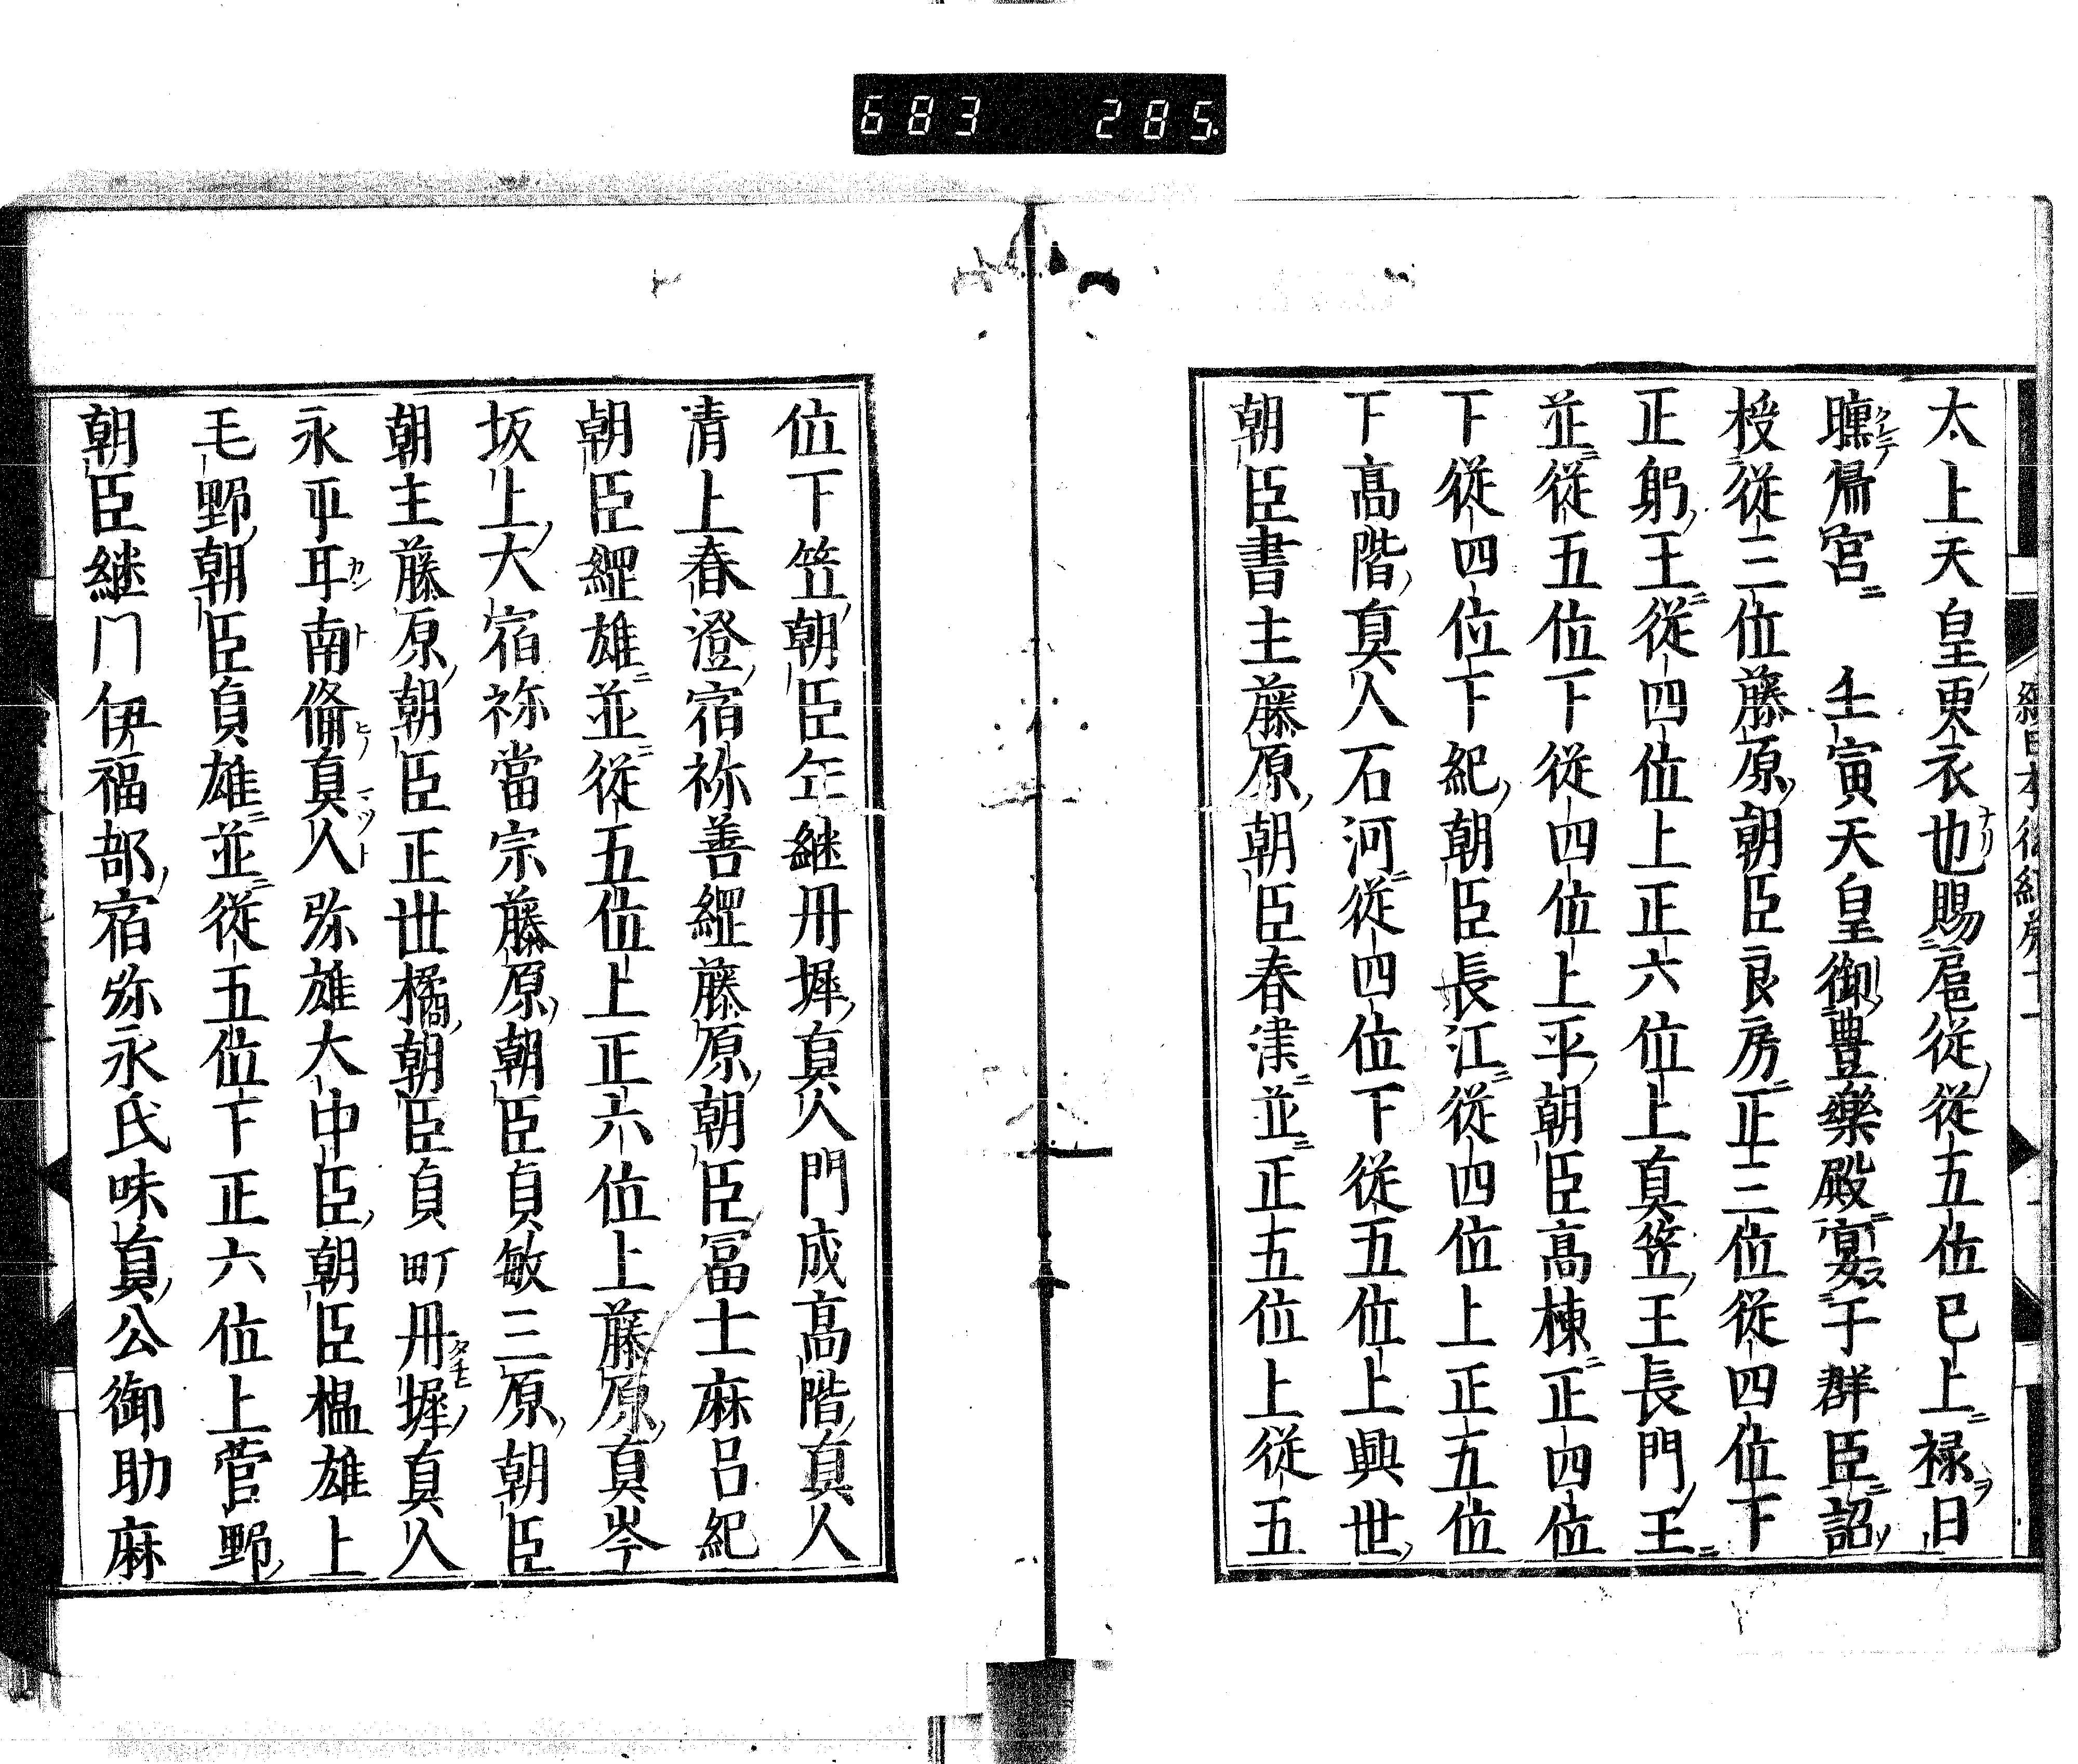 683 285
太上天皇更衣也賜扈從從五位已上禄日
曛還宮 壬寅天皇御豊樂殿宴于群臣詔
授從三位藤原朝臣良房正三位從四位下
正躬王從四位上正六位上真笠王長門王
並從五位下從四位上平朝臣高棟正四位
下從四位下紀朝臣長江從四位上正五位
下高階真人石河從四位下從五位上興世
朝臣書主藤原朝臣春津並正五位上從五
位下笠朝臣年継丹墀真人門成高階真人
清上春澄宿祢善縄藤原朝臣冨士麻呂紀
朝臣綱雄並從五位上正六位上藤原真岑
坂上大宿祢當宗藤原朝臣貞敏三原朝臣
朝主藤原朝臣正世橘朝臣貞町丹墀真人
永平甘南備真人弥雄大中臣朝臣榲雄上
毛野朝臣貞雄並從五位下正六位上菅野
朝臣継門伊福部宿弥永氏味真公御助麻